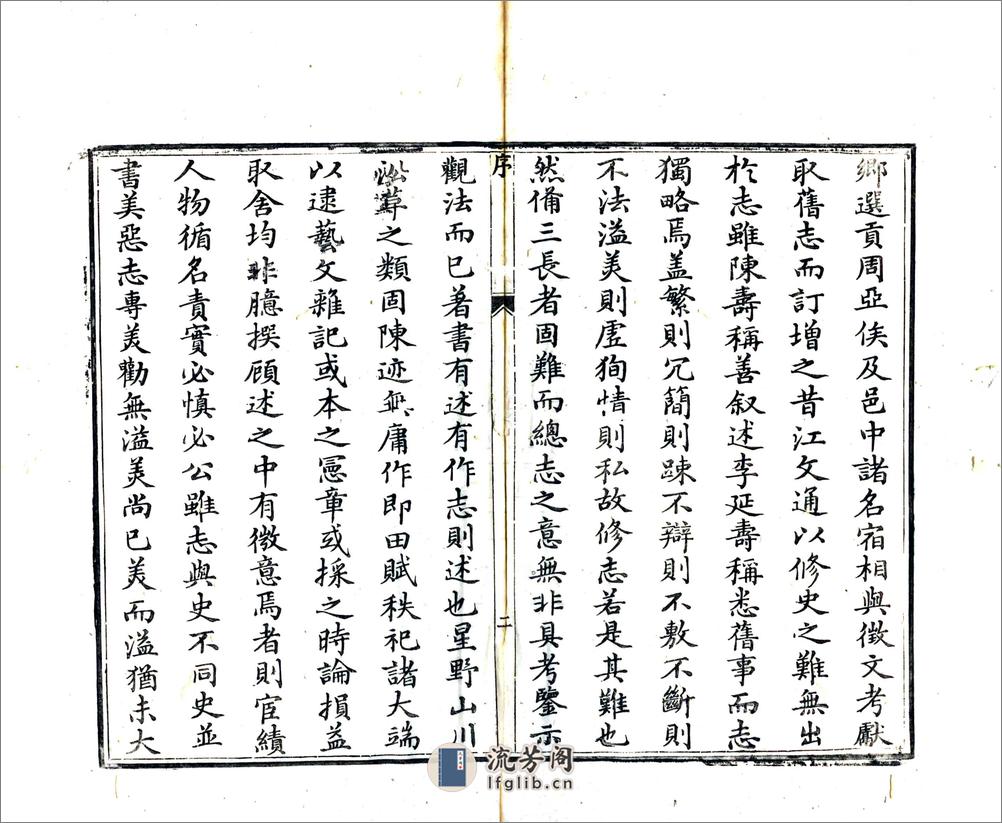 鄉選貢周亞侯及邑中諸名宿相與徵文考獻
取舊志而訂增之昔江文通以修史之難無出
於志雖陳壽稱善叙述李延壽稱悉舊事而志
獨略焉盖繁則冗簡則踈不辯則不敷不斷則
不法溢美則虛狥情則私故修志若是其難也
然備三長者固難而總志之意無非具考鑒示
序
二
觀法而已著書有述有作志則述也星野山川
之類固陳迹無庸作即田賦秩祀諸大端
以逮藝文雜記或本之憲章或採之時論損益
取舍均非臆撰顧述之中有微意焉者則宦績
人物循名責實必慎必公雖志與史不同史並
書美惡志專美勸無溢美尚已美而溢猶未大
流芳阁
lfglib.cn